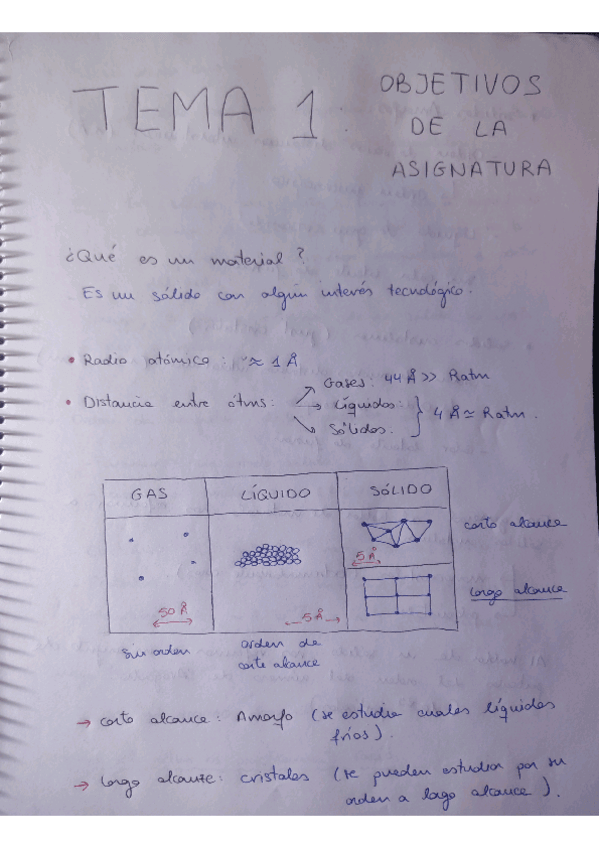 TEMA 1.
OBJETIVOS
DE LA
ASIGNATURA
¿Qué es un material?
Es un sólido con algún interés tecnológico.
• Radio atómico: ≈ 1 Å
• Distancia entre átms:
Gases: 44 Å >> Ratm
Líquidos:
Sólidos:
4 Å ≃ Ratm.
GAS
LÍQUIDO
SÓLIDO
50 Å
5 Å
5 Å
corto alcance
largo alcance
sin orden
orden de
corto alcance
→ corto alcance: Amorfo (se estudia cuales líquidos
fríos).
→ largo alcance: cristales (se pueden estudiar por su
orden a largo alcance).